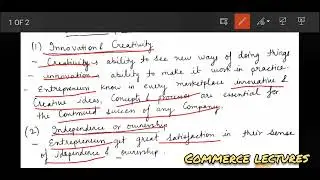 1 OF 2
(1) Innovation & Creativity
- Creativity is ability to see new ways of doing things
innovation - ability to make it work in practice
- Entrepreneurs know in every marketplace innovative &
Creative ideas, Concepts & processes are essential for
the Continued success of any Company.
(2) Independence or ownership
- Entrepreneurs get great satisfaction in their sense
of idependence & ownership.
COMMERCE LECTURES